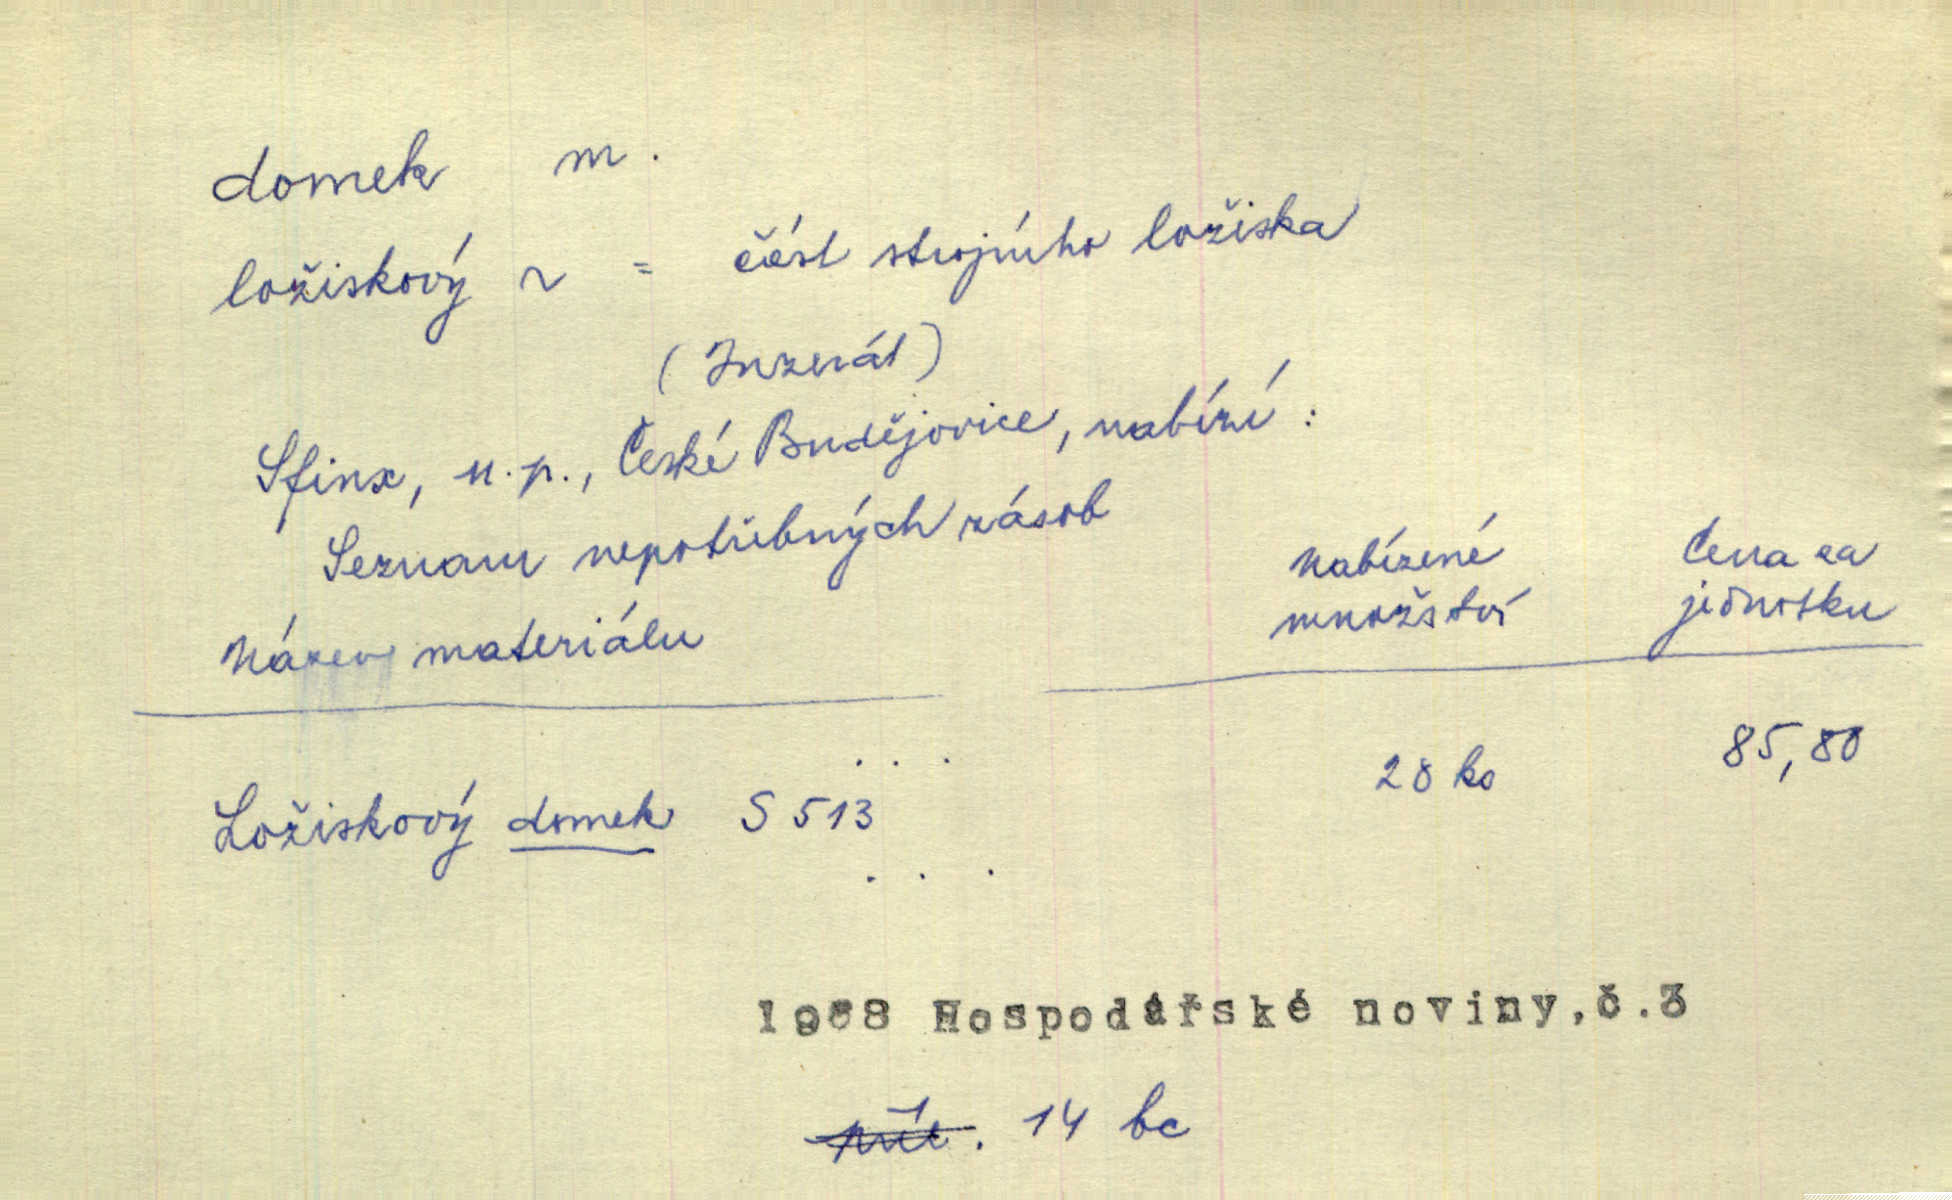 domek m.
ložiskový ~ = část strojního ložiska
(Inzerát)
Sfinx, n.p., České Budějovice, nabízí:
Seznam nepotřebných zásob
Název materiálu Nabízené množství Cena za jednotku
. . .
Ložiskový domek S 513 28 ks 85,80
. . .
1988 Hospodářské noviny,č.3
14 bc